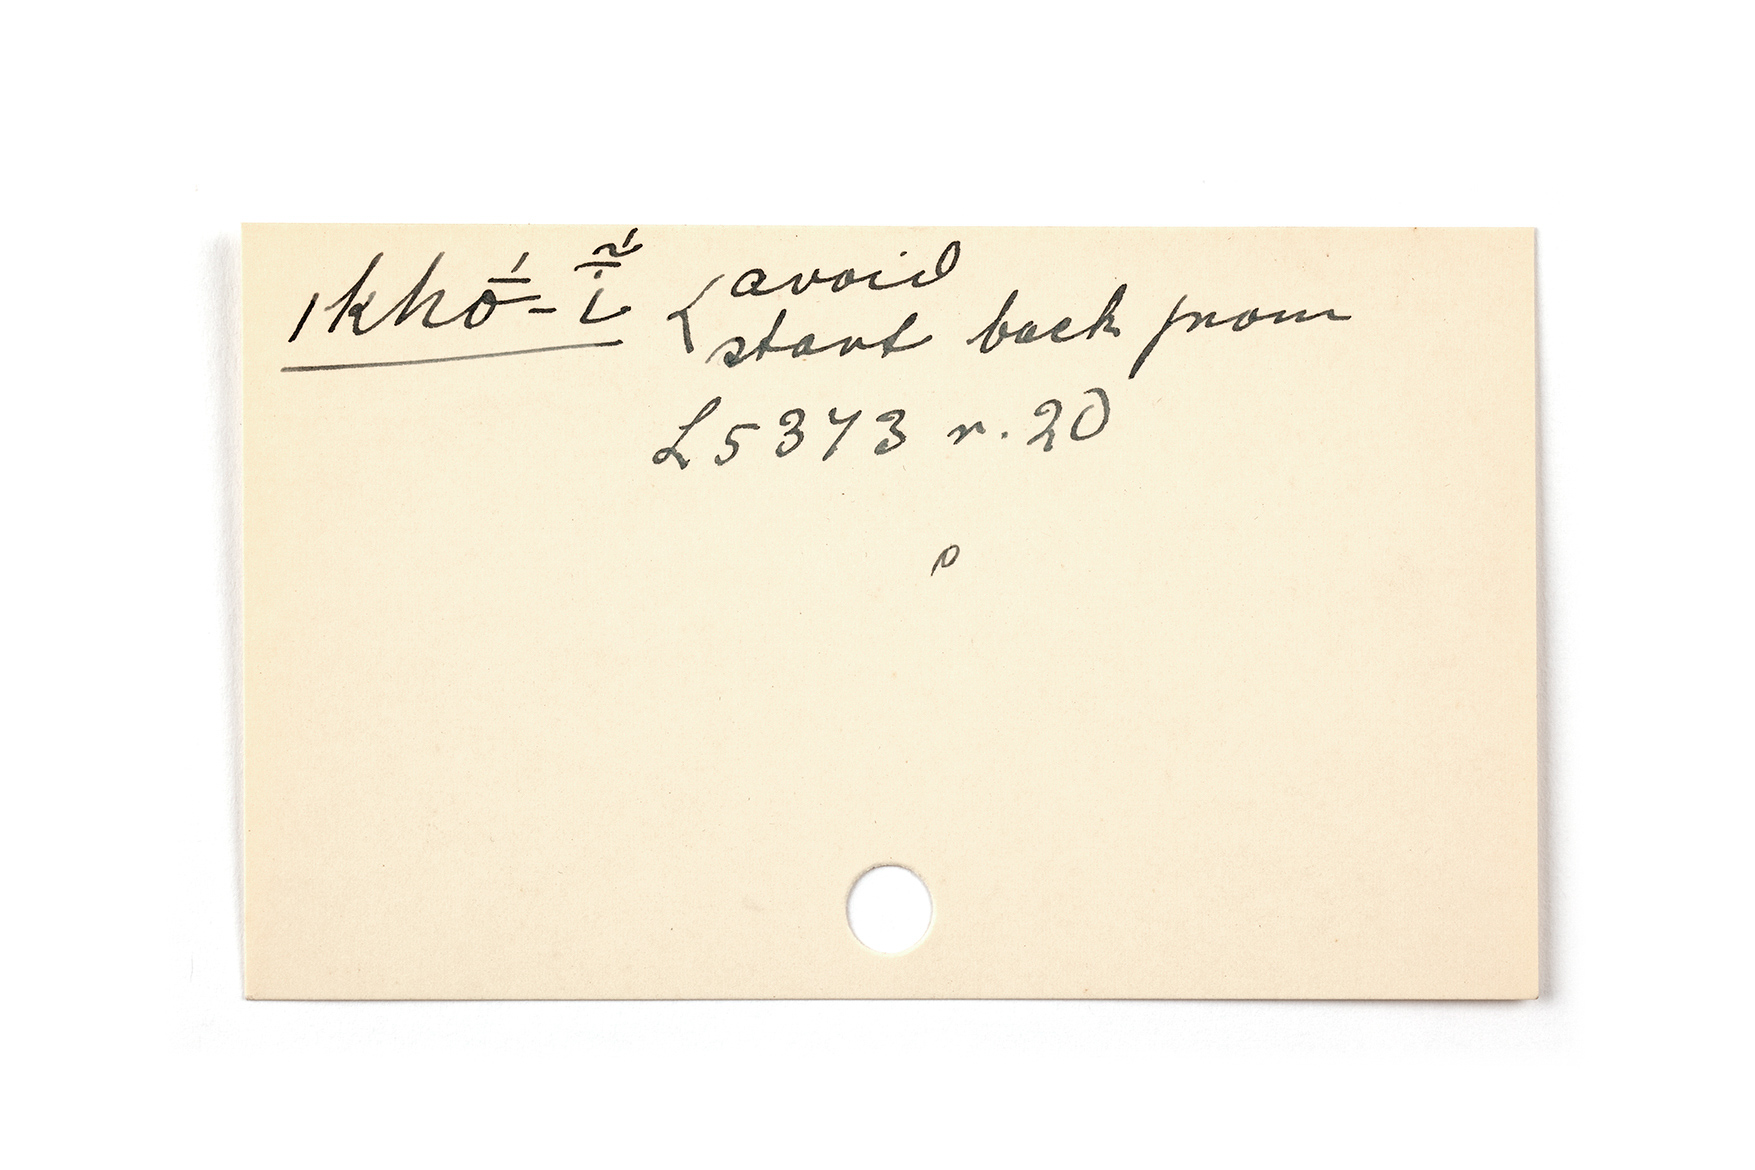 ǀkhṓ-ĩ̄́ { avoid
start back from
L5373 r. 20